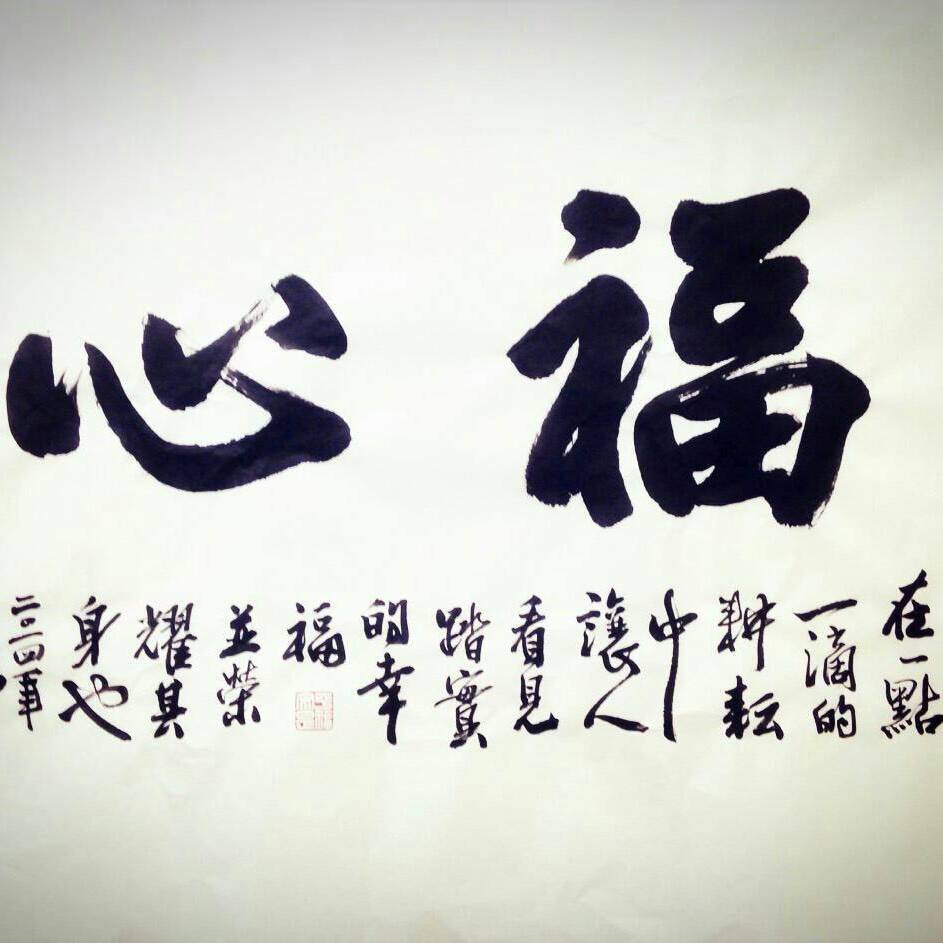 福心
在一點
一滴的
耕耘
中
讓人
看見
踏實
的幸
福
並榮
耀其
身也
二〇一四年